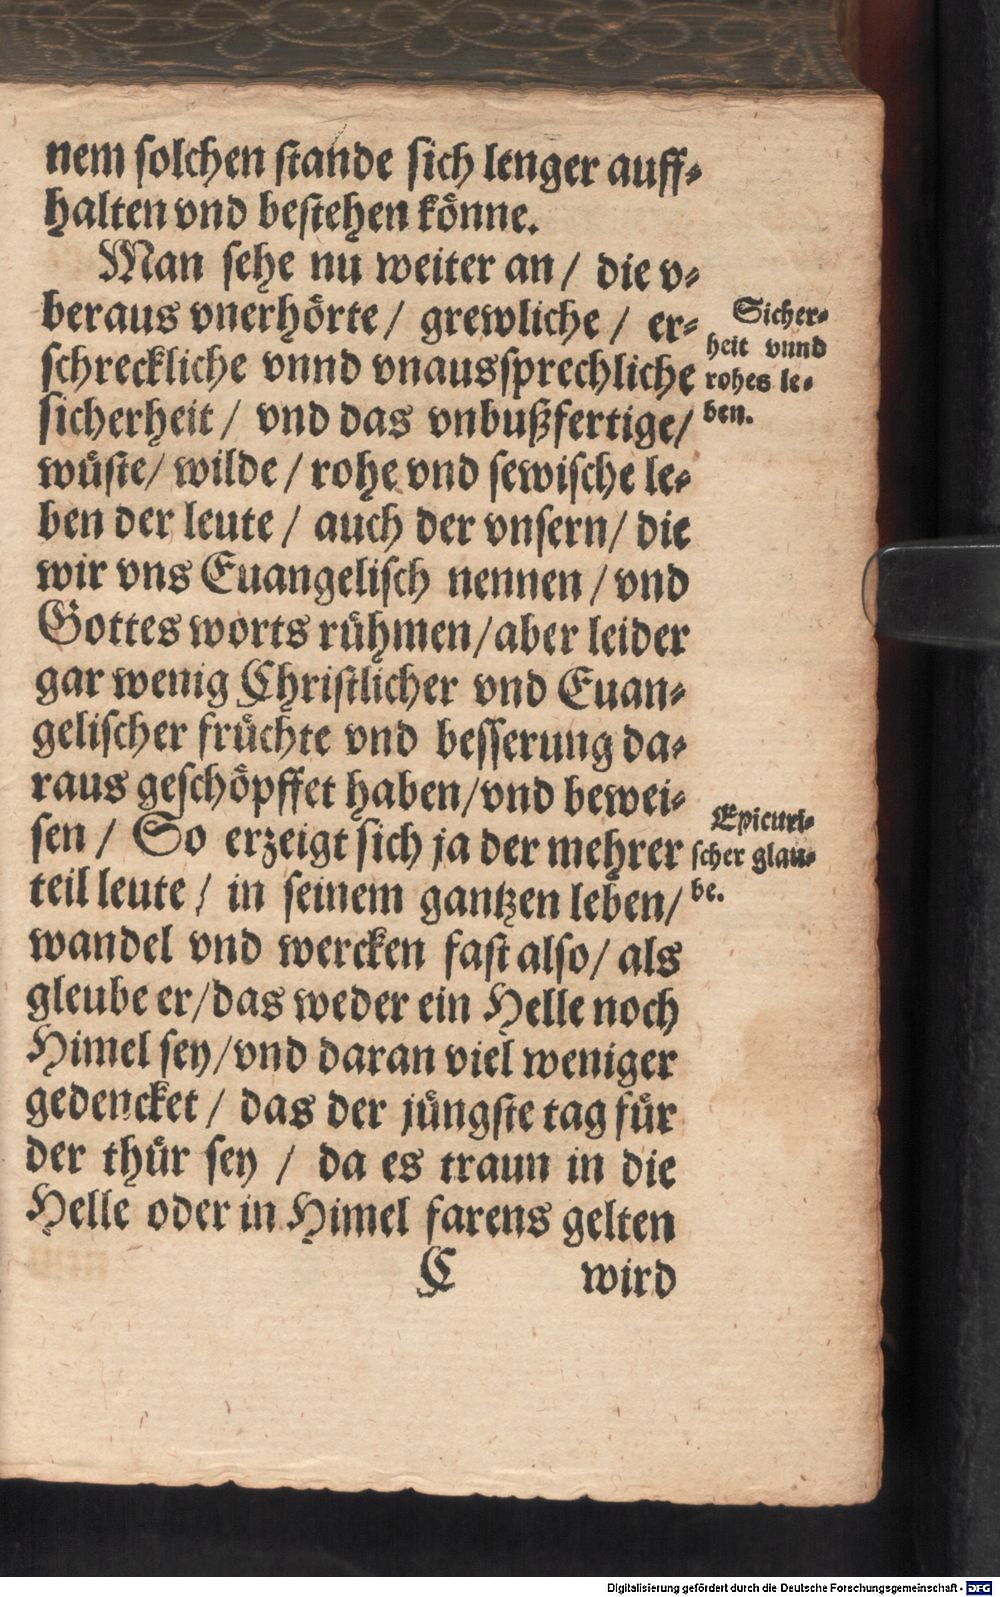 nem solchen stande sich lenger auff⸗
halten vnd bestehen könne.
Man sehe nu weiter an / die v⸗
beraus vnerhörte / grewliche / er⸗
schreckliche vnnd vnaussprechliche
sicherheit / vnd das vnbußfertige /
wüste / wilde / rohe vnd sewische le⸗
ben der leute / auch der vnsern / die
wir vns Euangelisch nennen / vnd
Gottes worts rühmen / aber leider
gar wenig Christlicher vnd Euan⸗
gelischer früchte vnd besserung da⸗
raus geschöpffet haben / vnd bewei⸗
sen / So erzeigt sich ja der mehrer
teil leute / in seinem gantzen leben /
wandel vnd wercken fast also / als
gleube er / das weder ein Helle noch
Himel sey / vnd daran viel weniger
gedencket / das der jüngste tag für
der thür sey / da es traun in die
Helle oder in Himel farens gelten
C wird
Sicher⸗
heit vnnd
rohes le⸗
ben.
Epicuri⸗
scher glau⸗
be.
Digitalisierung gefördert durch die Deutsche Forschungsgemeinschaft - DFG